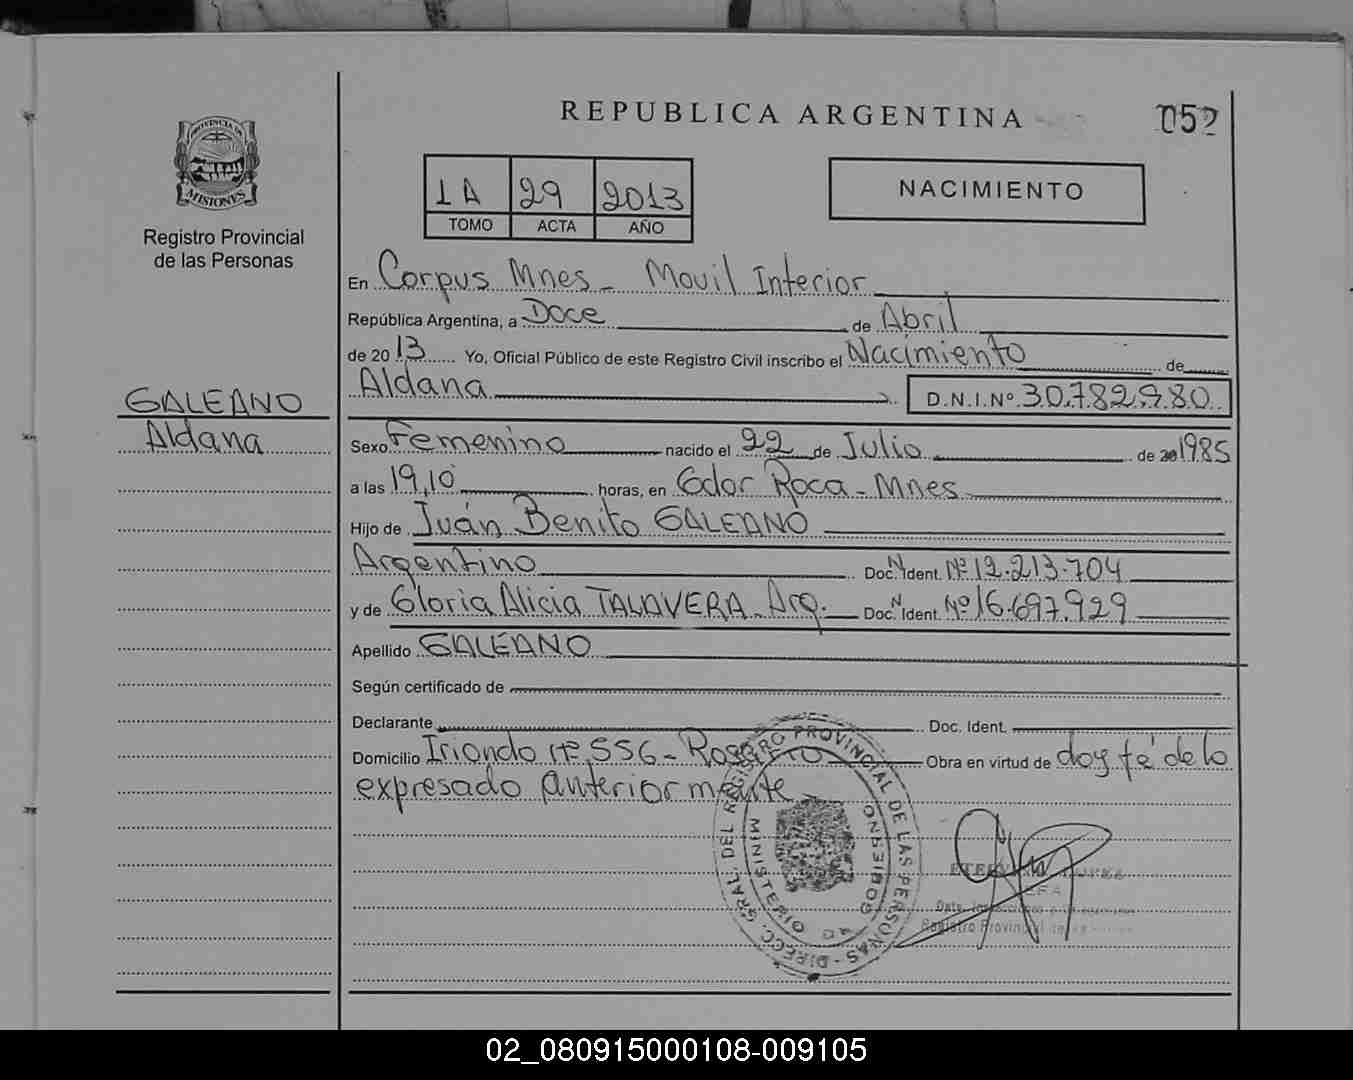 REPUBLICA ARGENTINA
052
PROVINCIA DE
MISIONES
Registro Provincial
de las Personas
1A 29 2013
TOMO ACTA AÑO
NACIMIENTO
En Corpus Mnes - Movil Interior
República Argentina, a Doce de Abril
de 2013 Yo, Oficial Público de este Registro Civil inscribo el Nacimiento de
Aldana D.N.I.Nº 30.782.980
GALEANO
Aldana
Sexo Femenino nacido el 22 de Julio de 1985
a las 19,10 horas, en Gdor Roca - Mnes
Hijo de Juán Benito GALEANO
Argentino Doc. N. Ident. Nº 12.213.704
y de Gloria Alicia TALAVERA - Arg. Doc. N Ident. Nº 16.697.929
Apellido GALEANO
Según certificado de
Declarante Doc. Ident.
Domicilio Iriondo Nº 556 - Obra en virtud de doy fé de lo
expresado anteriormente
DIRECC. GRAL. DEL REGISTRO PROVINCIAL DE LAS PERSONAS
MINISTERIO DE GOBIERNO
Registro Provincial
02_080915000108-009105